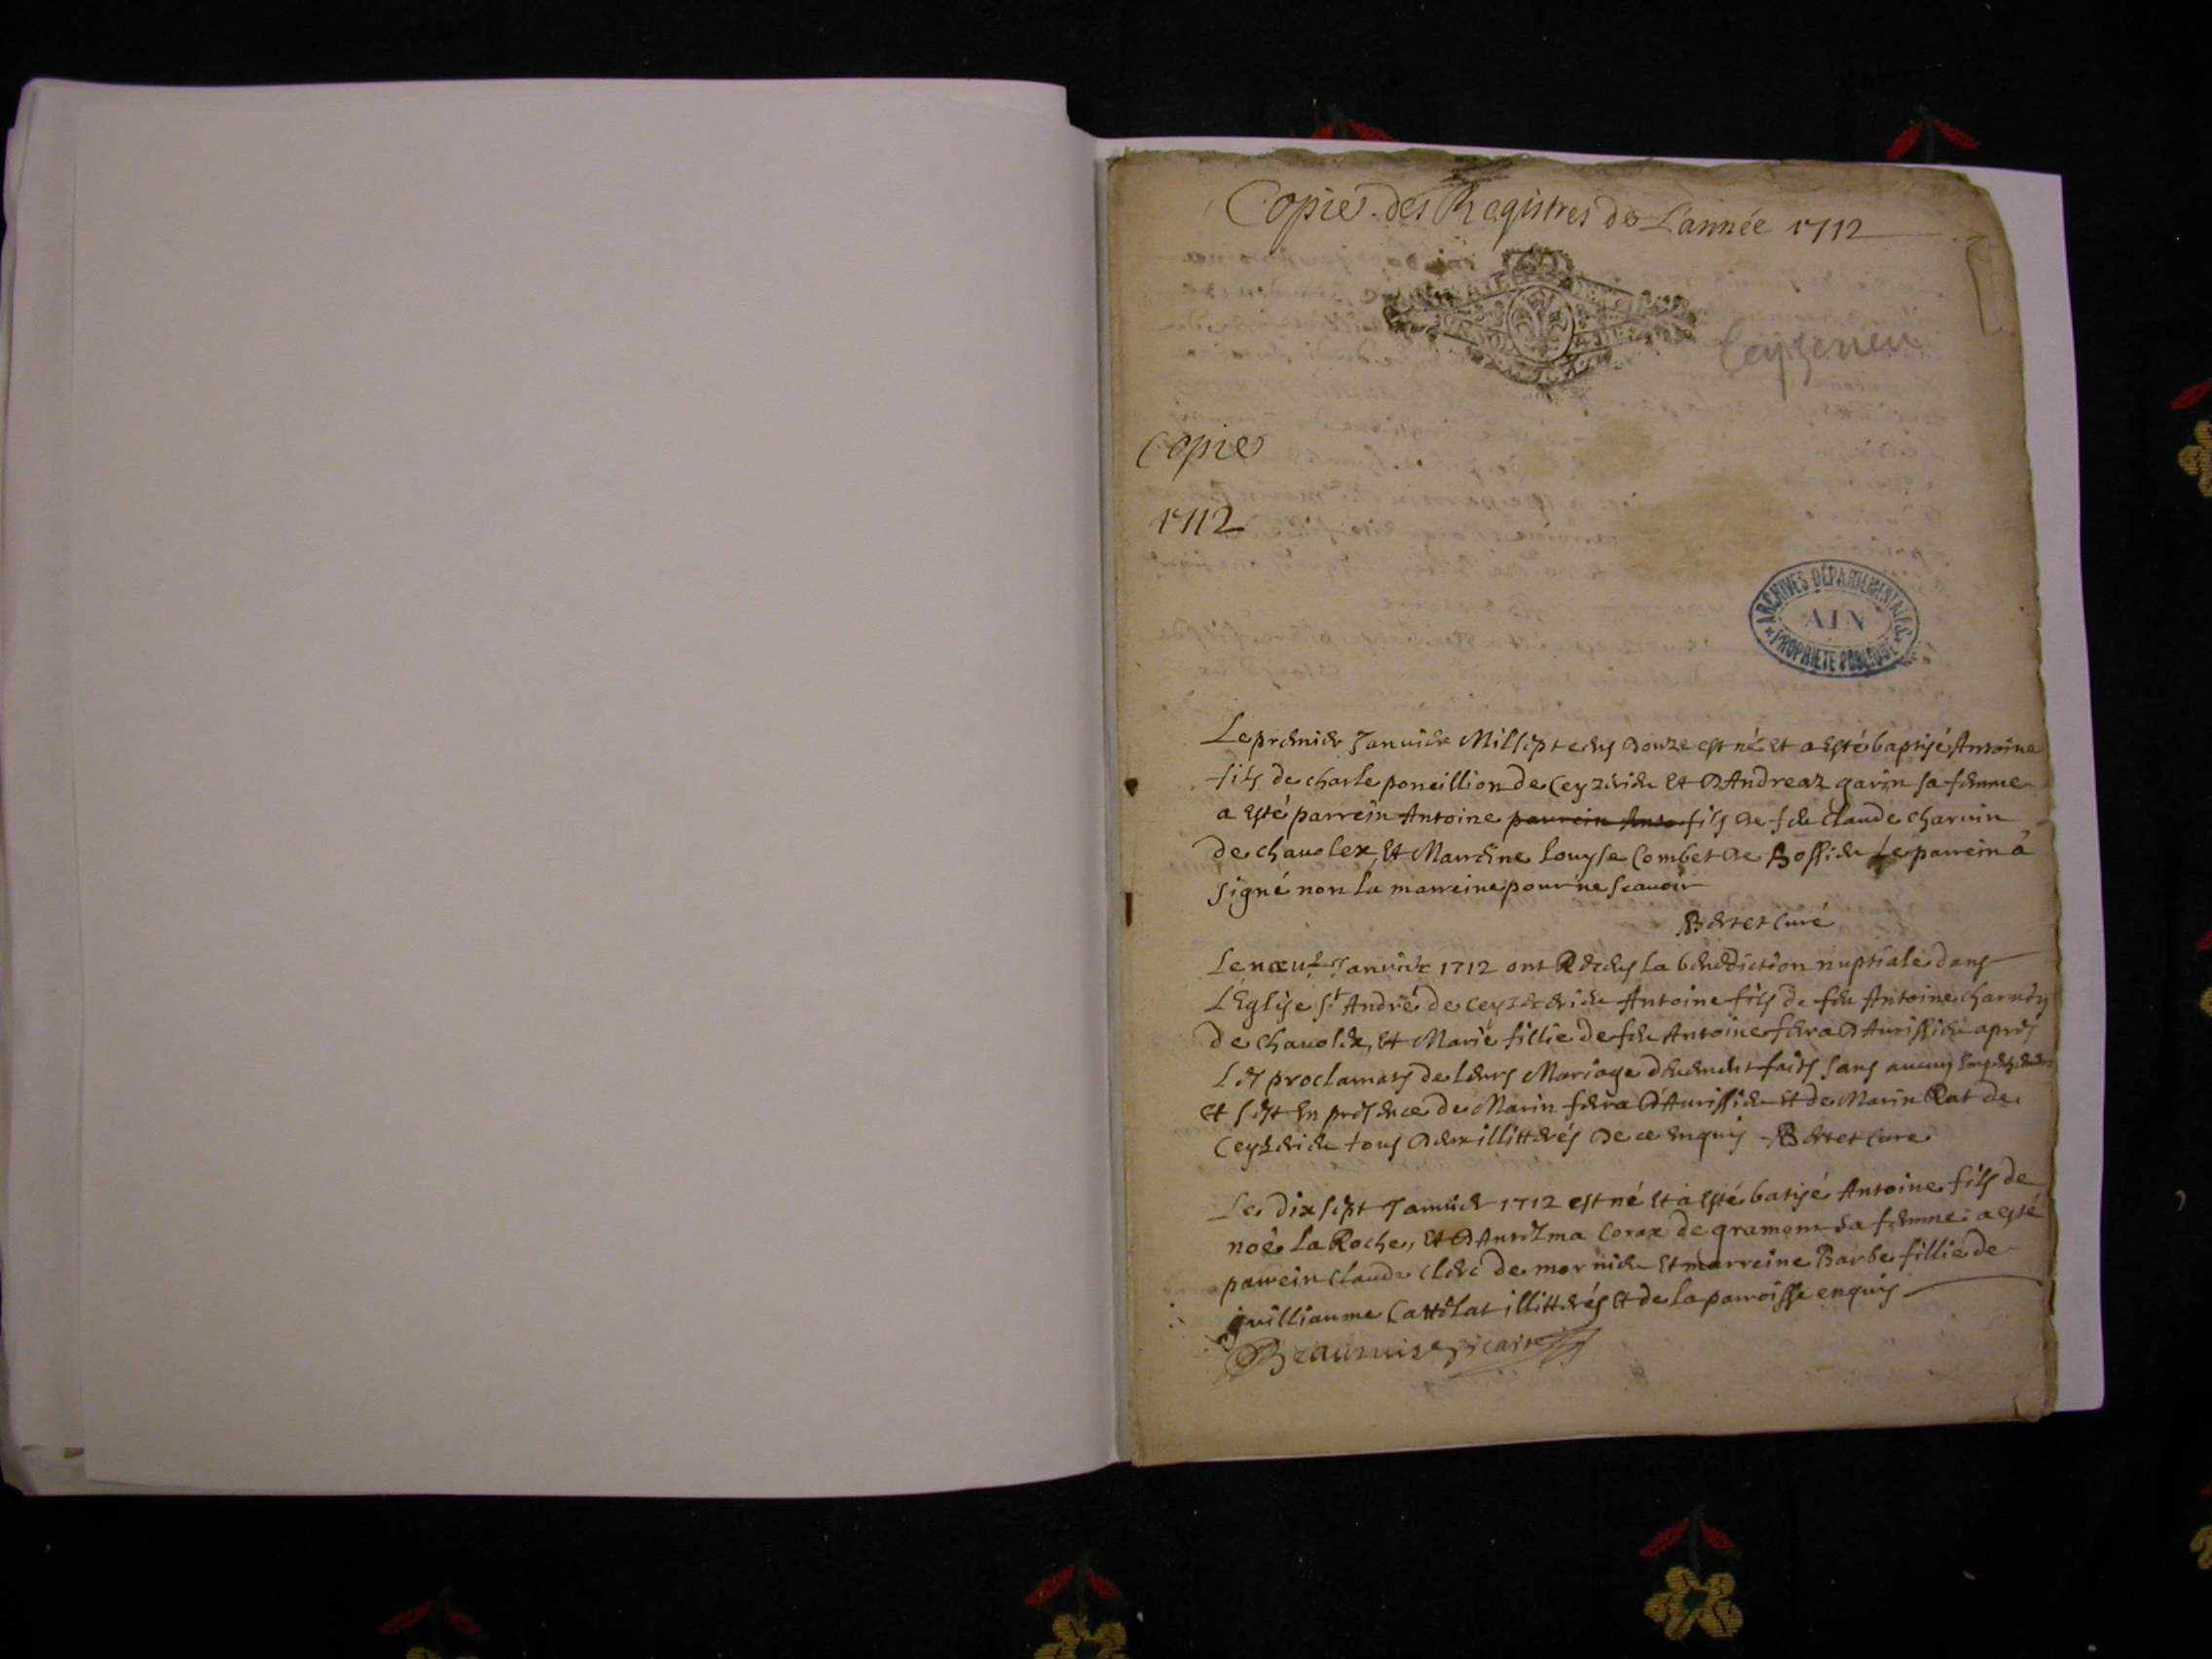 Copie des Registres de L'année 1712
Ceyzerieu
Copie
1712
ARCHIVES DÉPARTEMENTALES
AIN
PROPRIÉTÉ PUBLIQUE
Le premier Janvier Mil sept cens douze est né et a esté baptisé Antoine
fils de Charle poncillion de Ceyzerieu et D'Andreaz gavin sa femme
a esté parrein Antoine parrein Anto fils de feu Claude Charvin
de Chavolex, et Marreine Louyse Combet de Boissieu Le parrein a
signé non la marreine pour ne scavoir
Bertet Curé
Le neuf Janvier 1712 ont Receus la benediction nuptiale dans
L'Eglise St André de Ceyzerieu Antoine fils de feu Antoine
de Chavolex, et Marie fillie de feu Antoine fera D'Avrissieu apres
Les proclamats de leurs Mariage deuement faits sans aucun Empechement
et s'est En presence de Marin fera D'Avrissieu et de Marin Rat de
Ceyzerieu tous deux illitterés de ce enquis Bertet Cure
Le Dix sept Janvier 1712 est né et a esté batisé Antoine fils de
noé La Roche, et D'Antelma Corax de gramont sa femme a esté
parrein Claude Clerc de mornieu et marreine Barbe fillie de
guilliaume Cattelat illitterés et de la parroisse enquis
Vicaire